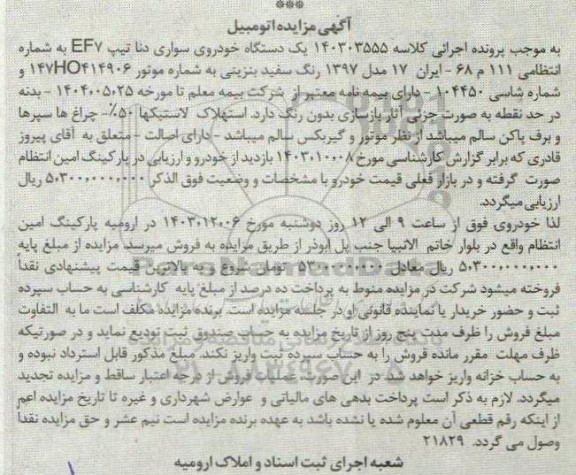 آگهی مزایده اتومبیل
به موجب پرونده اجرائی کلاسه ۱۴۰۳۰۳۵۵۵ یک دستگاه خودروی سواری دنا تیپ EF۷ به شماره
انتظامی ۱۱۱ م ۶۸ - ایران ۱۷ مدل ۱۳۹۷ رنگ سفید بنزینی به شماره موتور ۱۴۷H۰۴۱۴۹۰۶ و
شماره شاسی ۱۰۴۴۵۰ - دارای بیمه نامه معتبر از شرکت بیمه معلم تا مورخه ۱۴۰۴،۰۵،۲۵ - بدنه
در حد نقطه به صورت جزئی آثار بازسازی بدون رنگ دارد. استهلاک لاستیکها ۵۰٪ - چراغ ها سپرها
و برف پاکن سالم میباشد از نظر موتور و گیربکس سالم میباشد - دارای اصالت - متعلق به آقای پیروز
قادری که برابر گزارش کارشناسی مورخ ۱۴۰۳،۱۰،۰۸ بازدید از خودرو و ارزیابی در پارکینگ امین انتظام
صورت گرفته و در بازار فعلی قیمت خودرو با مشخصات و وضعیت فوق الذکر ۵،۳۰۰،۰۰۰،۰۰۰ ریال
ارزیابی میگردد.
لذا خودروی فوق از ساعت ۹ الی ۱۲ روز دوشنبه مورخ ۱۴۰۳،۱۲،۰۶ در ارومیه پارکینگ امین
انتظام واقع در بلوار خاتم الانبیا جنب پل ابوذر از طریق مزایده به فروش میرسد. مزایده از مبلغ پایه
۵،۳۰۰،۰۰۰،۰۰۰ ریال معادل ۵۳۰،۰۰۰،۰۰۰ تومان شروع و به بالاترین قیمت پیشنهادی نقداً
فروخته میشود شرکت در مزایده منوط به پرداخت ده درصد از مبلغ پایه کارشناسی به حساب سپرده
ثبت و حضور خریدار یا نماینده قانونی او در جلسه مزایده است. برنده مزایده مکلف است ما به التفاوت
مبلغ فروش را ظرف مدت پنج روز از تاریخ مزایده به حساب صندوق ثبت تودیع نماید و در صورتیکه
ظرف مهلت مقرر مانده فروش را به حساب سپرده ثبت واریز نکند. مبلغ مذکور قابل استرداد نبوده و
به حساب خزانه واریز خواهد شد در این صورت عملیات فروش از درجه اعتبار ساقط و مزایده تجدید
میگردد. لازم به ذکر است پرداخت بدهی های مالیاتی و عوارض شهرداری و غیره تا تاریخ مزایده اعم
از اینکه رقم قطعی آن معلوم شده یا نشده باشد به عهده برنده مزایده است نیم عشر و حق مزایده نقداً
وصول می گردد. ۲۱۸۲۹
شعبه اجرای ثبت اسناد و املاک ارومیه